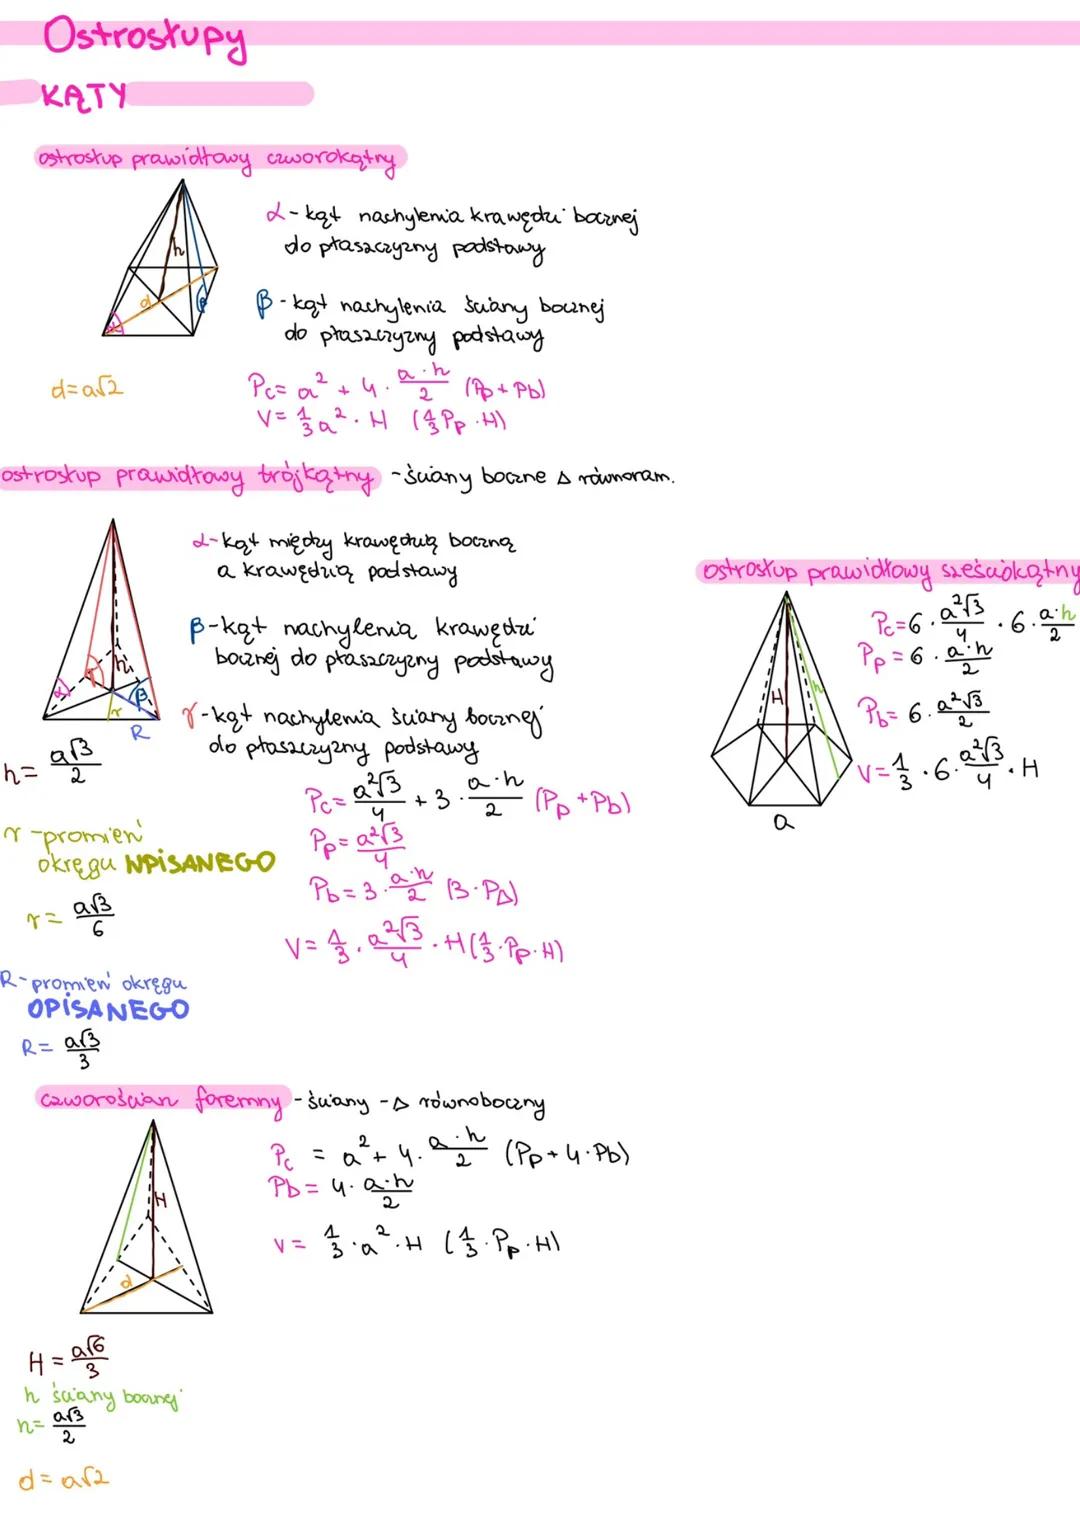 Ostrosłupy
KĄTY
ostrosłup prawidłowy czworokątny
α - kąt nachylenia krawędzi bocznej
do płaszczyzny podstawy
h
d
α
β
β - kąt nachylenia ściany bocznej
do płaszczyzny podstawy
d=a√2
Pc= a² + 4 · a·h/2 (Pp + Pb)
V= 1/3 a² · H (1/3 Pp · H)
ostrosłup prawidłowy trójkątny - ściany boczne Δ równoram.
α - kąt między krawędzią boczną
a krawędzią podstawy
β - kąt nachylenia krawędzi
bocznej do płaszczyzny podstawy
γ - kąt nachylenia ściany bocznej
do płaszczyzny podstawy
α
γ
h
β
r
R
h= a√3/2
Pc= a²√3/4 + 3 · a·h/2 (Pp + Pb)
Pp= a²√3/4
Pb= 3 · a·h/2 (3·PΔ)
V= 1/3 · a²√3/4 · H (1/3 · Pp · H)
r - promień
okręgu WPISANEGO
r= a√3/6
R - promień okręgu
OPISANEGO
R= a√3/3
ostrosłup prawidłowy sześciokątny
H
h
a
Pc=6 · a²√3/4 · 6 · a·h/2
Pp = 6 · a·h/2
Pb= 6 · a²√3/2
V= 1/3 · 6 · a²√3/4 · H
czworościan foremny - ściany - Δ równoboczny
H
d
Pc = a² + 4 · a·h/2 (Pp + 4·Pb)
Pb = 4 · a·h/2
V= 1/3 · a² · H (1/3 · Pp · H)
H = a√6/3
h ściany bocznej
h= a√3/2
d = a√2